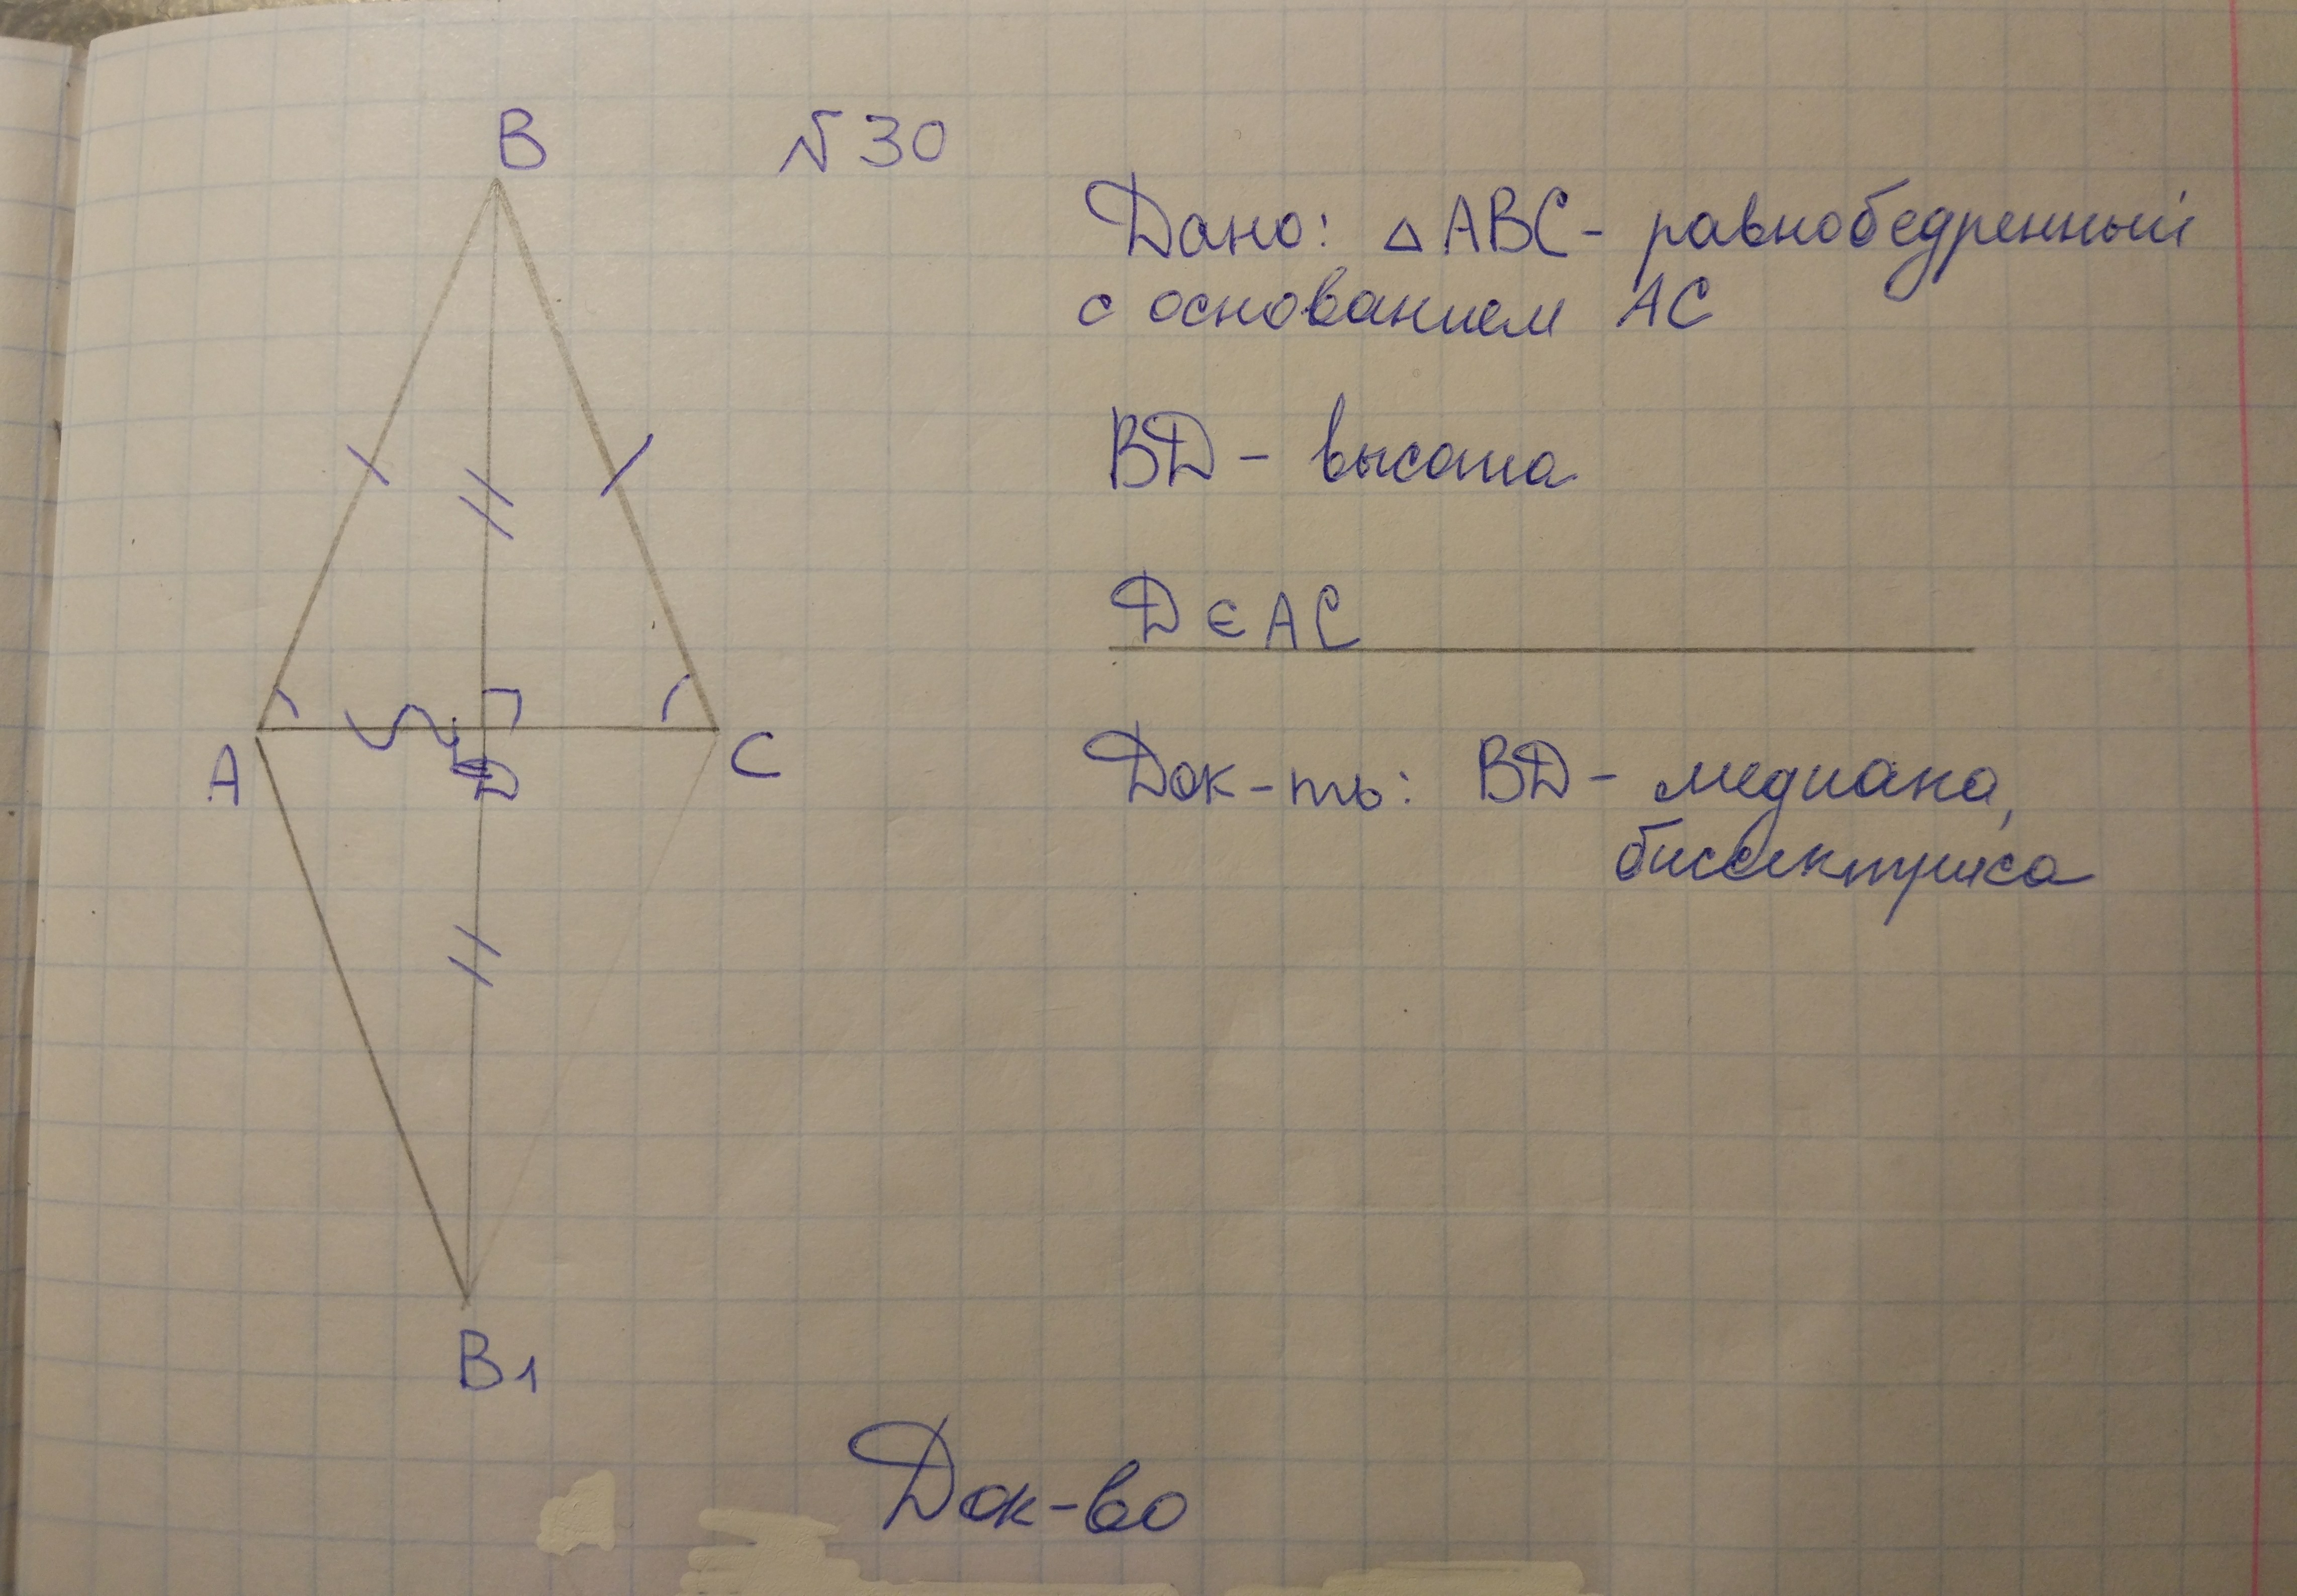 В
№ 30
Дано: △ АВС - равнобедренный
с основанием АС
ВД - высота
Д ∈ АС
Док-ть: ВД - медиана,
биссектриса
А
Д
С
В1
Док-во